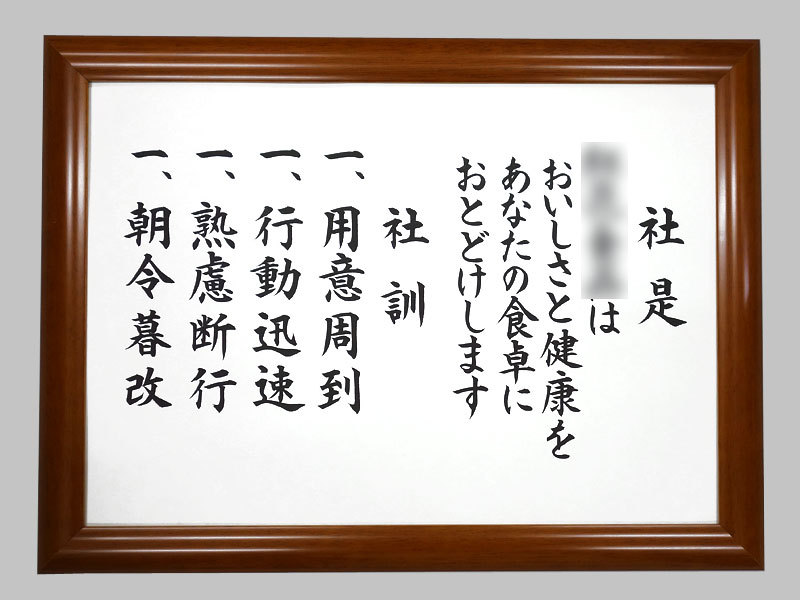 社是
は
おいしさと健康を
あなたの食卓に
おとどけします
社訓
一、用意周到
一、行動迅速
一、熟慮断行
一、朝令暮改